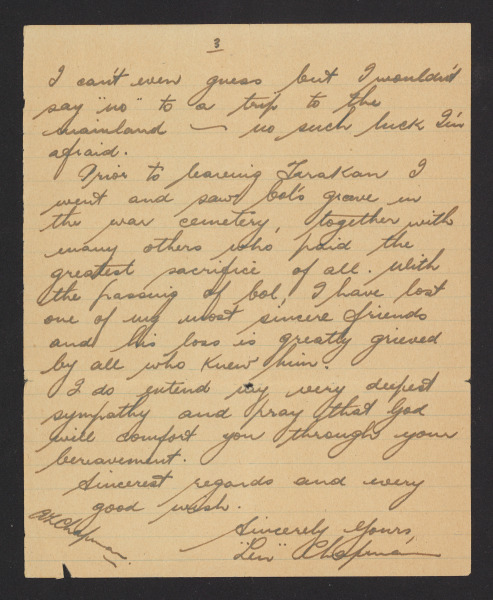 3
I can't even guess but I wouldn't
say "no" to a trip to the
mainland — no such luck I'm
afraid.
Prior to leaving Tarakan I
went and saw Col's grave in
the war cemetery, together with
many others who paid the
greatest sacrifice of all. With
the passing of Col, I have lost
one of my most sincere friends
and his loss is greatly grieved
by all who knew him.
I do extend my very deepest
sympathy and pray that God
will comfort you through your
bereavement.
Sincerest regards and every
good wish.
Sincerely Yours,
"Len" Chapman
Chapman.